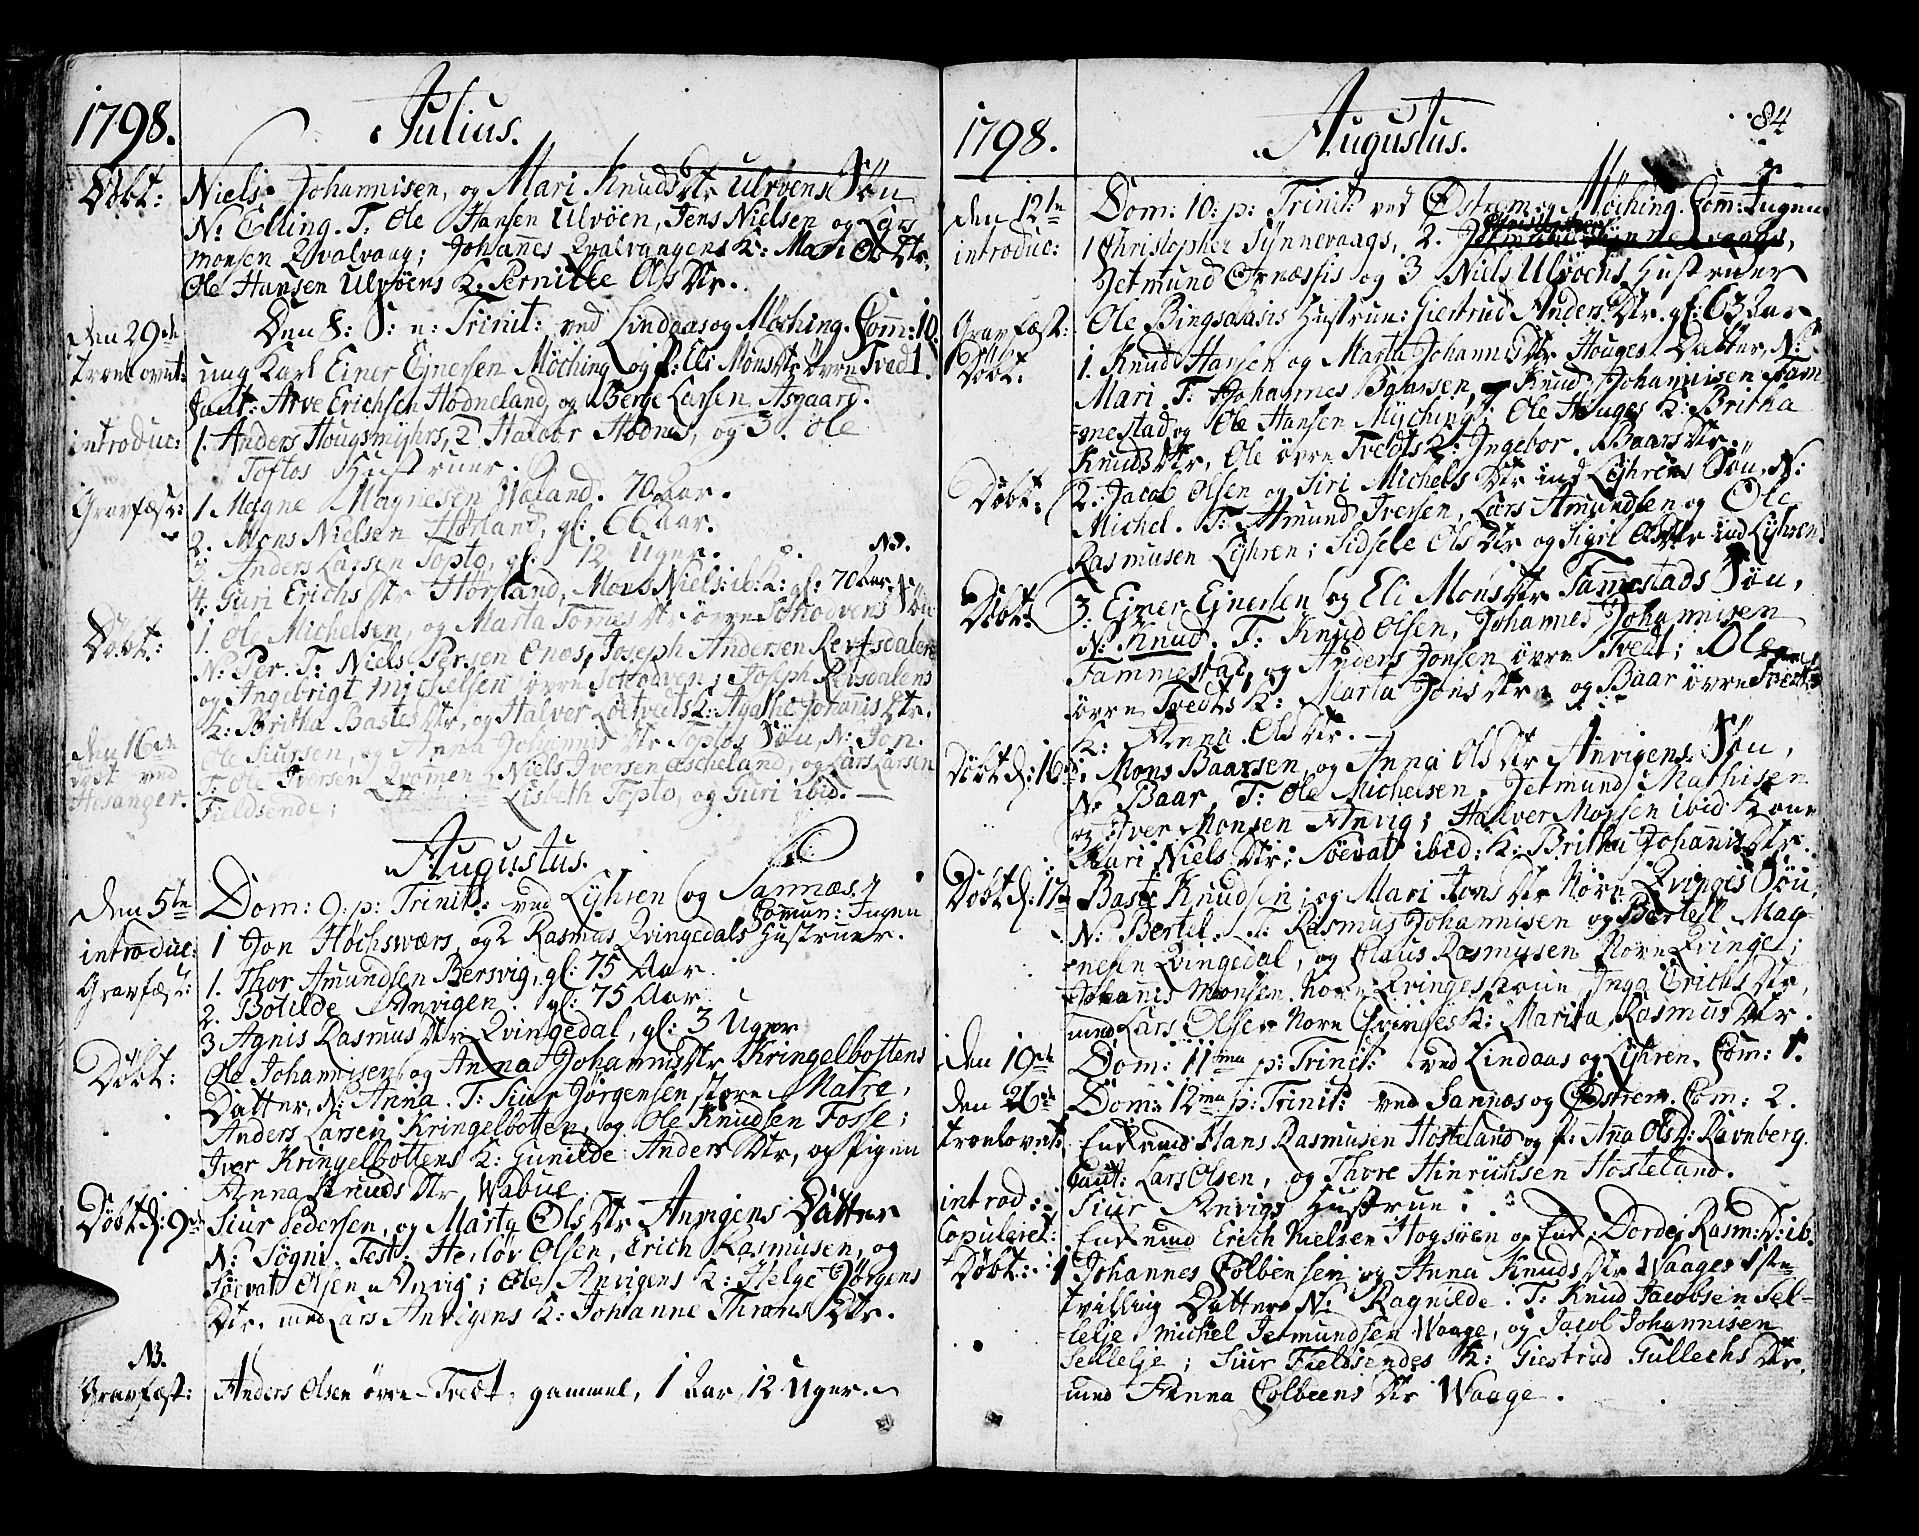 1798.
Julius.
Døbt:
Niels Johannisen, og Mari Knuds Dtr Ulvøens Søn
N: Elling. T. Ole Hansen Ulvöen, Jens Nielsen og Lars
monsen Qvalvaag; Johanes Qvalvaagens K: Mari Ols Dtr.
Ole Hansen Ulvöens K. Pernille Ols Dtr.
den 29de
Den 8: S: e: Trinit: ved Lindaas og Möching. Com: 10.
troelovet:
ung Karl Einer Ejnersen Möching og p: Eli Mons Dtr övre Tvedt.
Caut: Arve Erichsen Hodneland, og Berge Larsen Asgaard.
introduc:
1. Anders Hougsmyhrs, 2 Halvor Hodnes, og 3. Ole
Toftos Hustruer.
Gravfæst:
1 Magne Magnesen Væland. 70 Aar.
2. Mons Nielsen Hopland, gl. 66 Aar.
3. Anders Larsen Topto, gl: 12 Uger.
NB.
4. Guri Erichs Dtr Hopland, Mons Niels: ib: K: gl: 70 Aar.
Døbt:
1. Ole Michelsen, og Marta Tomas Dtr övre Schodvens Søn
N: Per. T: Niels Persen Enæs, Joseph Andersen Revsdalen
og Ingebrigt Michelsen övre Schodven; Joseph Revsdalens
K: Britha Bastes Dtr, og Halver Loetvedts K: Agathe Johanis Dtr.
den 16de
døbt ved
Hosanger.
Ole Siursen, og Anna Johannis Dtr Toptos Søn, N: Jon.
T: Ole Iversen Qvomen, Niels Iversen Æscheland, og Lars Larsen
Fieldsende; Lisbeth Topto, og Guri ibid.
Augustus.
Den 5te
Dom: 9: p: Trinit: ved Lyhren og Sannæs.
Commun: Ingen
introduc:
1 Jon Høchsværs, og 2 Rasmus Qvingedals Hustruer.
Gravfæst:
1. Thor Amundsen Bersvig, gl: 75 Aar.
2. Botilde Anvigen. gl: 75 Aar
3 Agnis Rasmus Dtr Qvingedal, gl: 3 Uger
Døbt:
Ole Johannisen og Anna Johannis Dtr Kringelbottens
Datter, N: Anna. T: Siur Jørgensen store Matre,
Anders Larsen Kringelbotten, og Ole Knudsen Fosse;
Iver Kringelbottens K: Gunilde Anders Dtr, og Pigen
Anna Knuds Dtr Wabue
Døbt d: 9de
Siur Pedersen, og Marta Ols Dtr Anvigens Datter
N: Søgni. Test: Herlöv Olsen, Erich Rasmusen, og
Soevat Olsen Anvig; Ole Anvigens K: Helge Jørgens
Dtr, med Lars Anvigens K: Johanne Thrones Dtr.
NB.
Gravfæst:
Anders Olsen övre Tvedt, gammel, 1 Aar, 12 Uger.
1798.
Augustus.
84
den 12te
Dom: 10: p: Trinit: ved Østrem og Möching. Com: Ingen
introduc:
1 Christopher Synnevaags, 2.
Jetmund Ornæssis og 3 Niels Ulvöens Hustruer
Gravfæst:
Ole Bingsaasis Hustrue: Giertrud Anders Dtr. gl: 63 Aar.
Døbt.
1. Knud Hansen og Marta Johannis Dtr Houges Datter, N:
Mari. T: Johannes Baarsen, Knud Johannisen Fam-
mestad og Ole Hansen Myching; Ole Houges K: Britha
Knuds Dtr, Ole övre Tvedts K: Ingebor. Baars Dtr.
Døbt:
2. Jacob Olsen og Siri Michels Dtr ind Lyhrens Søn, N:
Michel. T: Amund Iversen, Lars Amundsen og Ole
Rasmusen Lyhren; Sidsele Ols Dtr og Sigri Ols Dtr ind Lyhren.
Døbt:
3. Ejner Ejnersen og Eli Mons Dtr Fammestads Søn,
N: Knud. T: Knud Olsen, Johannes Johannisen
Fammestad, og Anders Jonsen övre Tvedt; Ole
övre Tvedts K: Marta Jons Dtr og Baar övre Tvedts
K: Anna Ols Dtr.
Døbt d: 16de
Mons Baarsen, og Anna Ols Dtr Anvigens Søn,
N: Baar, T: Ole Michelsen, Jetmund Mathisen
og Iver Monsen Anvig; Halver Monsen ibid: Kone
Mari Niels Dtr; Soevat ibid: K: Britha Johannis Dtr.
Døbt d: 17de
Baste Knudsen, og Mari Jons Dtr Nore Qvinges Søn,
N: Bertel. T: Rasmus Johannisen og Bertel Mag-
nesen Qvingedal, og Claus Rasmusen Nore Qvinge;
Johannes Monsen Nore Qvinges Kone, Inga Erichs Dtr,
med Lars Olsen Nore Qvinges K: Marita Rasmus Dtr.
den 19de
Dom: 11ma p: Trinit: ved Lindaas og Lyhren. Com: 1.
den 26de
Dom: 12ma p: Trinit: ved Sannæs og Østrem. Com: 2.
troelovet:
Enkemd Hans Rasmusen Hosteland og p: Anna Ols D: Ravnberg.
Caut: Lars Olsen, og Thore Hinrichsen Hosteland.
introd:
Siur Anvigs Hustrue.
Copuleret:
Enkemd Erich Nielsen Hogsøen og Enk: Dordei Rasm: D: ib.
Døbt:
1 Johannes Colbensen og Anna Knuds Dtr Waages 1ste
tvilling Datter N: Ragnilde. T: Knud Jacobsen Sel-
lelje, Michel Jetmundsen Waage, og Jacob Johannisen
Sellelje; Siur Fieldsendes K: Giertrud Gullechs Dtr
med Anna Colbeens Dtr Waage.